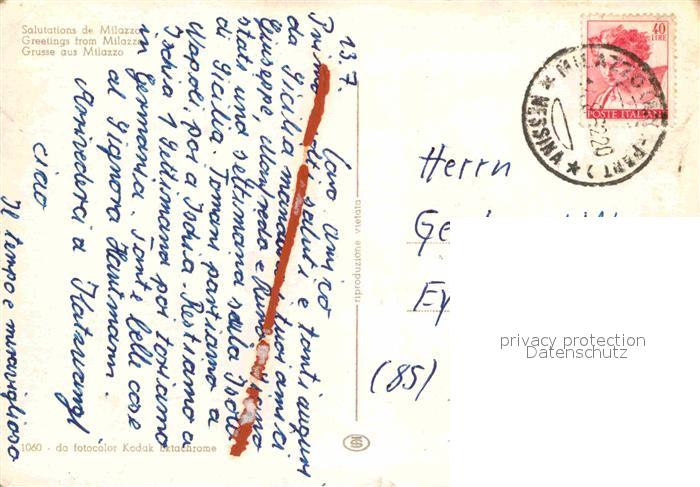 Salutations de Milazzo
Greetings from Milazzo
Grüsse aus Milazzo
13.7.
Caro amico
Prima di saluti e tanti auguri
da Sicilia mandano tuoi amici
Giuseppe, Manfredo e Runo. Siamo
stati una settimana sulla Isola
di Sicilia. Tomani partiamo a
Napoli, poi a Ischia. Restiamo a
Ischia 1 Settimana poi toriamo
in Germania. Tante belle cose
al Signora Hautmann.
Arrivederci a
ciao
Il tempo e meraviglioso
1060 - da fotocolor Kodak Ektachrome
riproduzione vietata
40
LIRE
POSTE ITALIANE
MILAZZO
MESSINA
Herrn
Ge
Ey
(85)
privacy protection
Datenschutz